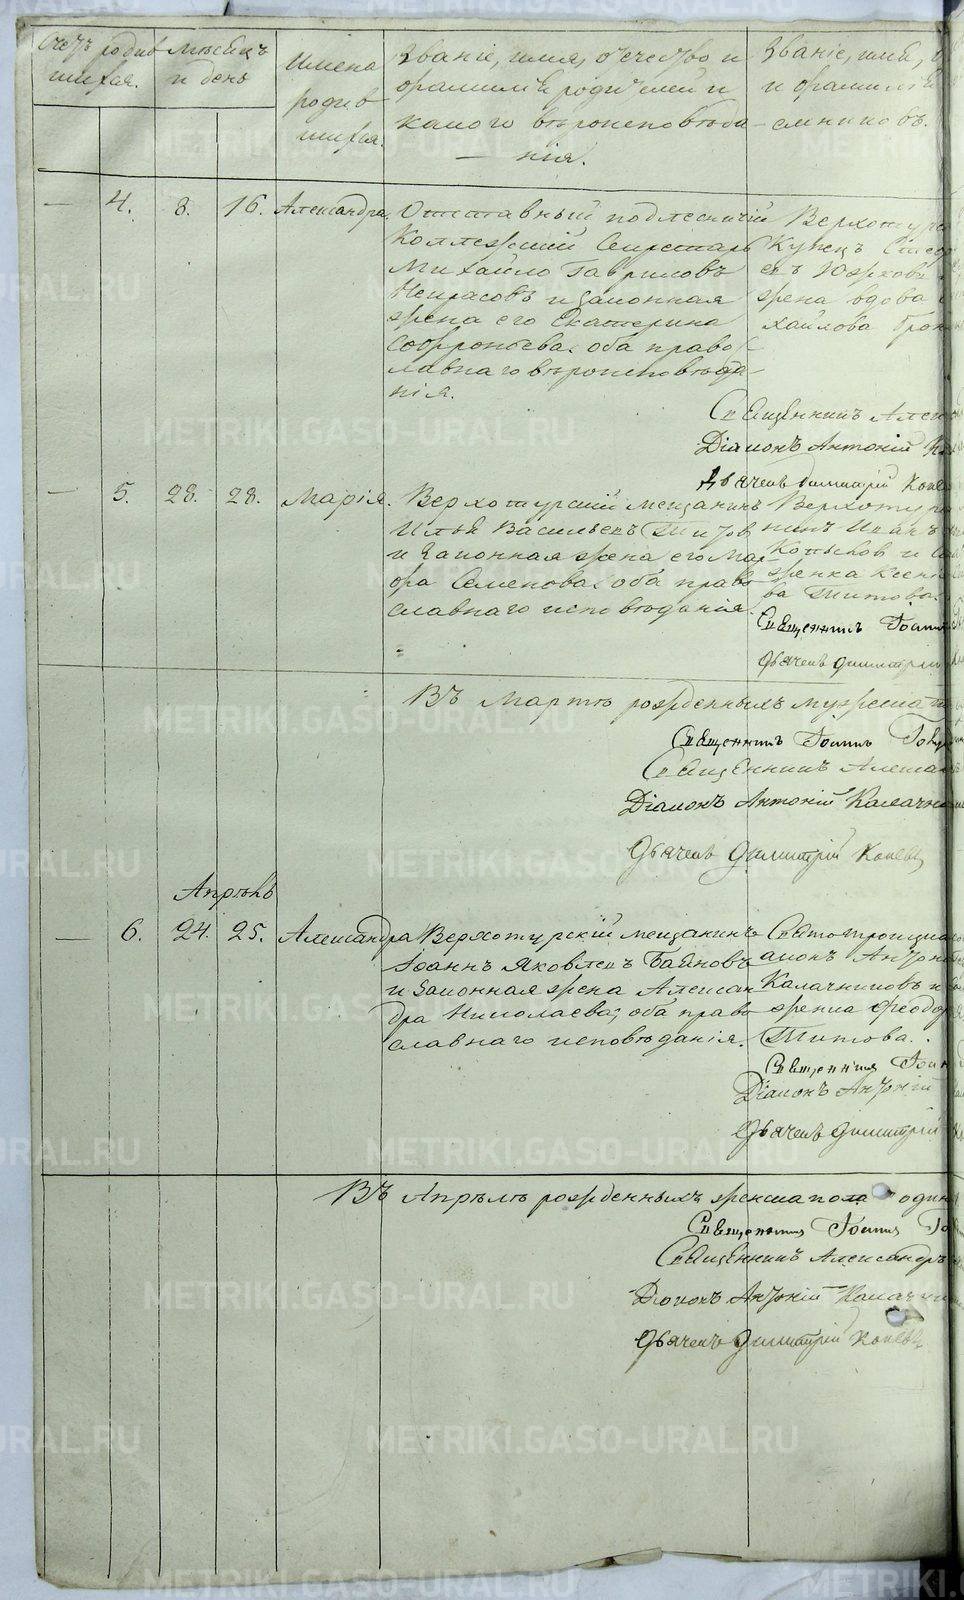 Счетъ родив
шихся.
Мѣсяцъ
и день
Имена
родив
шихся.
Званіе, имя, отечество и
фамилія родителей и
какого вѣроисповѣда
нія.
Званіе, имя,
и фамилія
емниковъ.
4. 8. 16. Александра.
Отставный подлесничій
Коллежскій Секретарь
Михайло Гавриловъ
Некрасовъ и законная
жена его Екатерина
Софроньева, оба право
славнаго вѣроисповѣда
нія.
Верхотурс
Купецъ
жена вдова
хайлова
Священникъ Алекс
Діаконъ Антоній
Дьячекъ Димитрій Коне
5. 28. 28. Марія.
Верхотурскій мещанинъ
Илья Васильевъ Титов
и законная жена его Ма
Семенова, оба право
славнаго исповѣданія.
Верхотур
нинъ
Копыков и
женка Ксені
ва Титова.
Священникъ Іоанн
Дьячекъ Димитрій
Въ Мартѣ рожденныхъ мужеска
Священникъ Іоаннъ
Священникъ Алекса
Діаконъ Антоній Калачни
Дьячекъ Димитрій Коневъ
Апрѣль
6. 24. 25. Александра
Верхотурскій мещанинъ
Іоаннъ Яковлевъ Баиновъ
и законная жена Алексан
дра Николаева; оба право
славнаго исповѣданія.
Святотроицка
аконъ Антон
Калачниковъ и
женка Феодо
Титова.
Священникъ Іоан
Діаконъ Антоній
Дьячекъ Димитрій
Въ Апрѣлѣ рожденныхъ женска пола один
Священникъ Іоаннъ
Священникъ Александръ
Діаконъ Антоній Калачни
Дьячекъ Димитрій Коневъ
METRIKI.GASO-URAL.RU